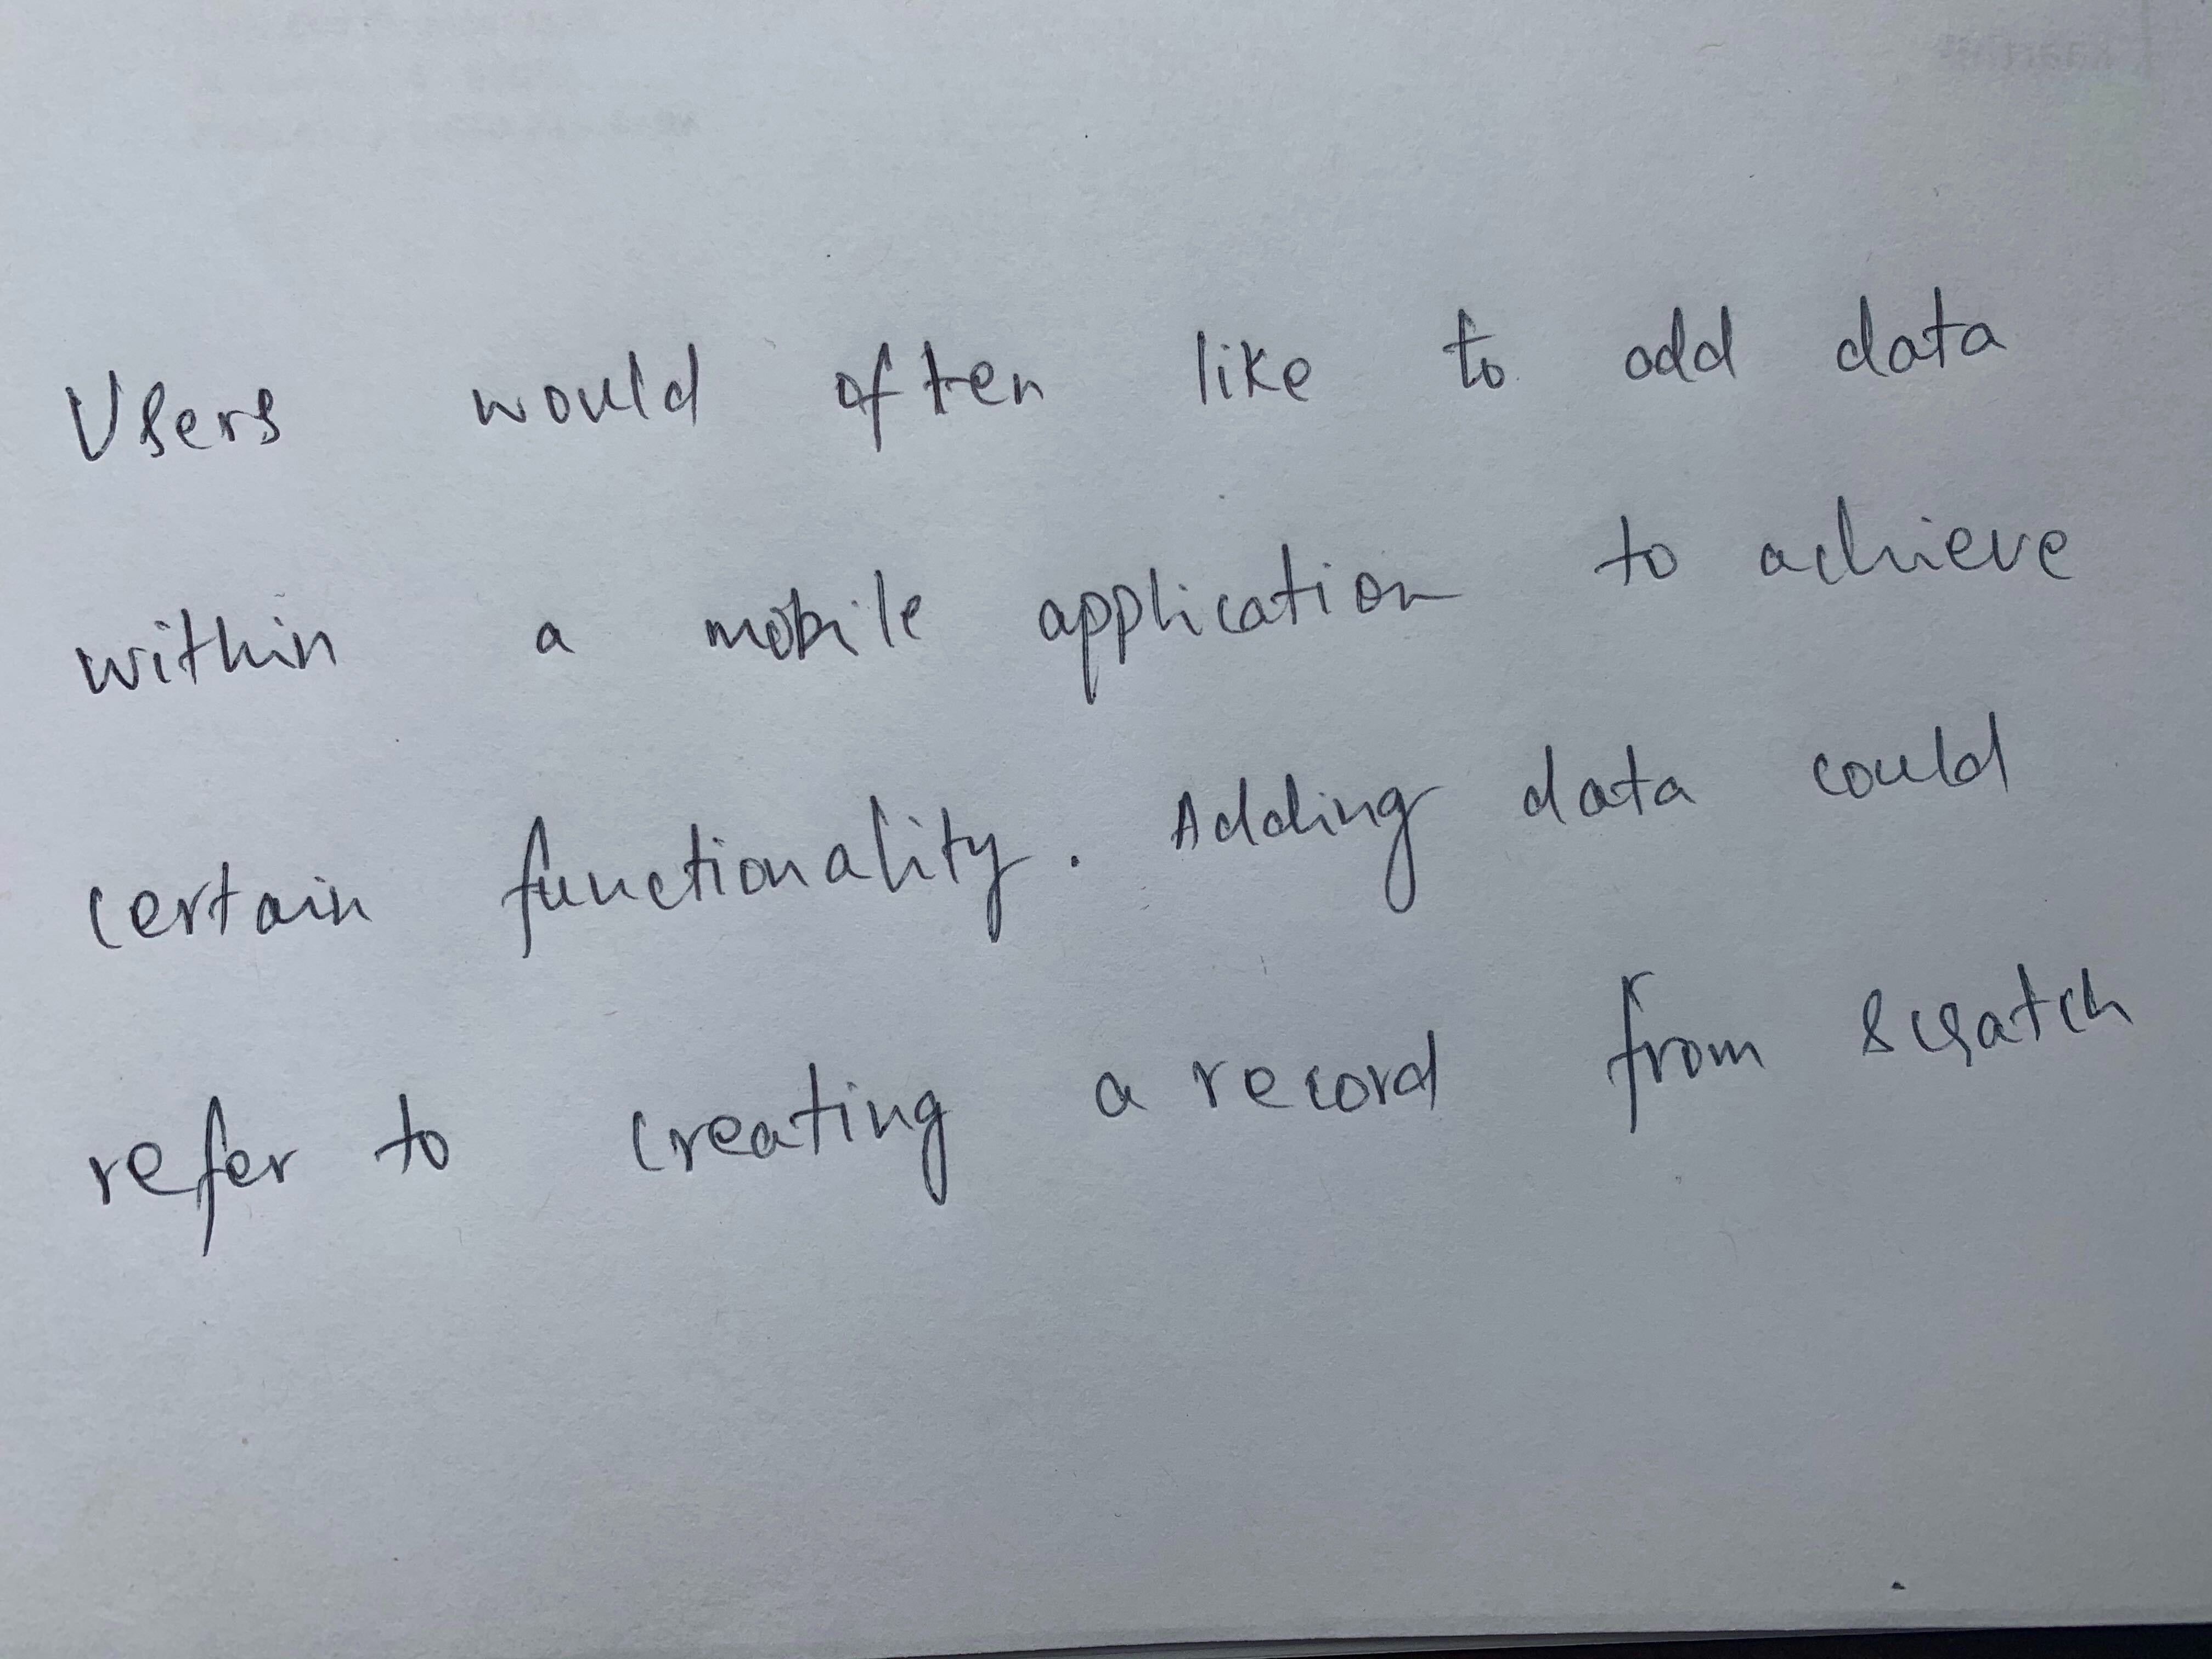 Users would often like to add data
within a mobile application to achieve
certain functionality. Adding data could
refer to creating a record from scratch